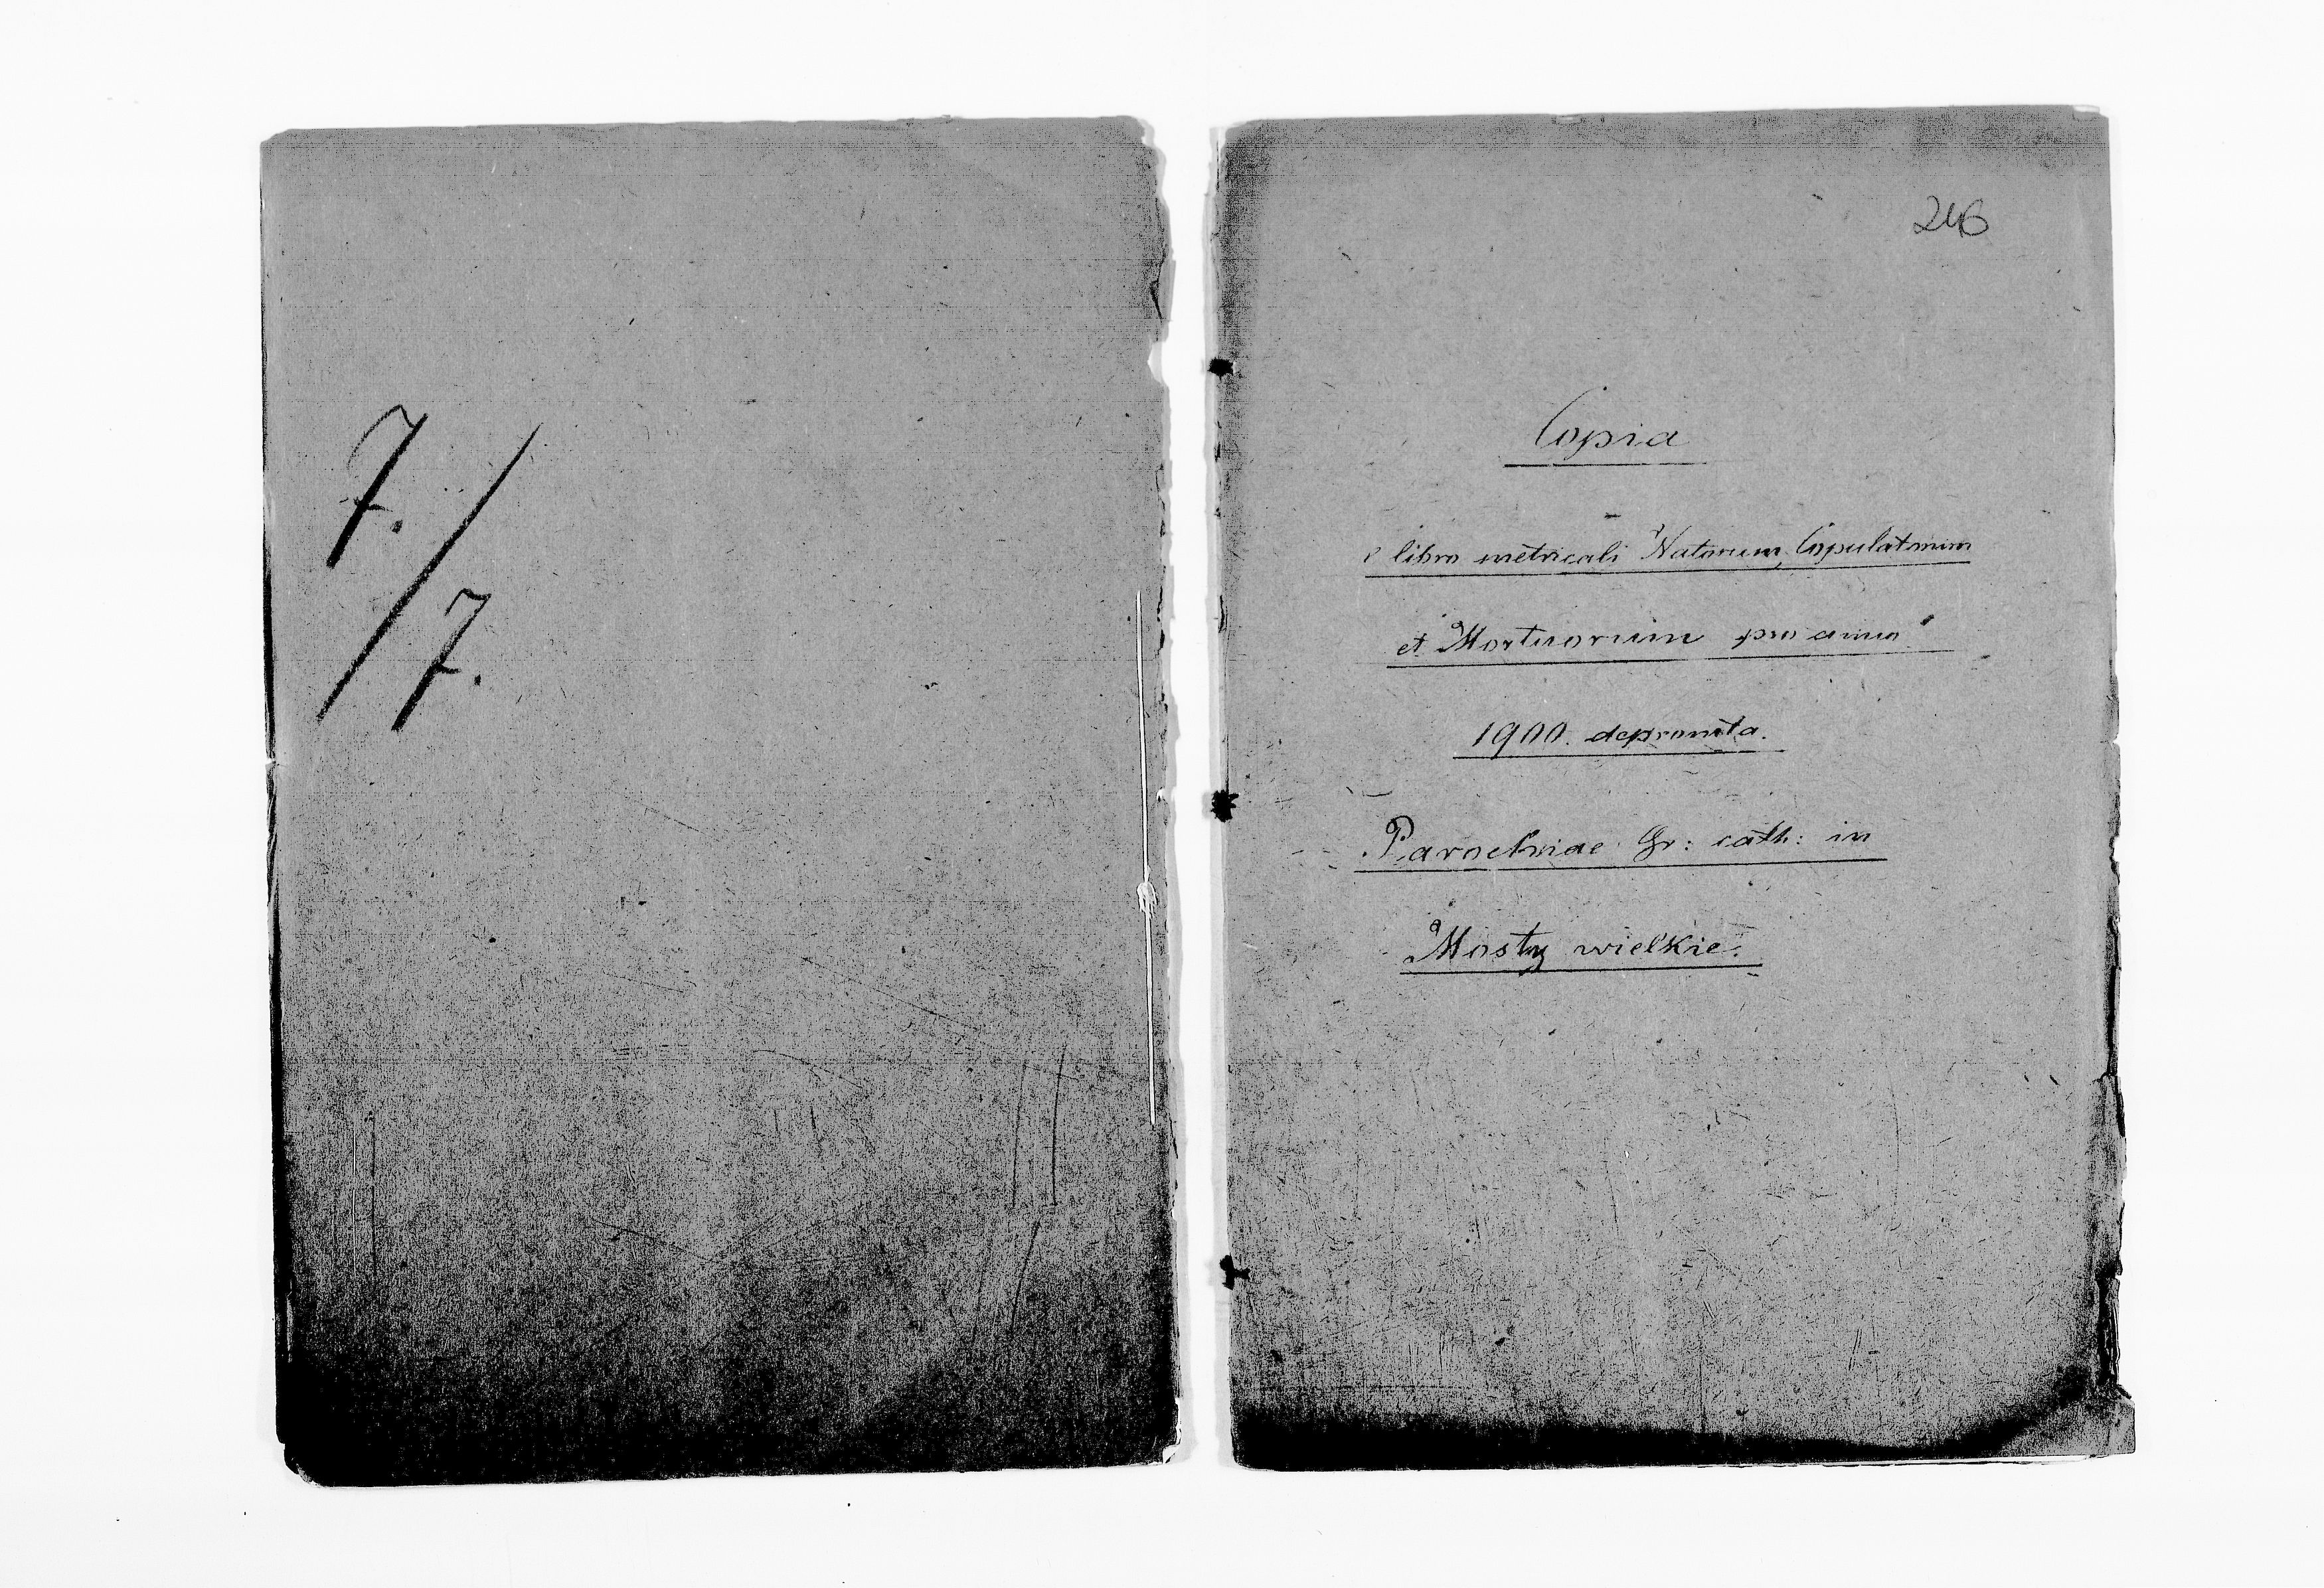 7./7.
246
Copia
e libro metricali Natorum, Copulatorum
et Mortuorum pro anno
1900. depromta.
Parochiae Gr: cath: in
Mosty wielkie.